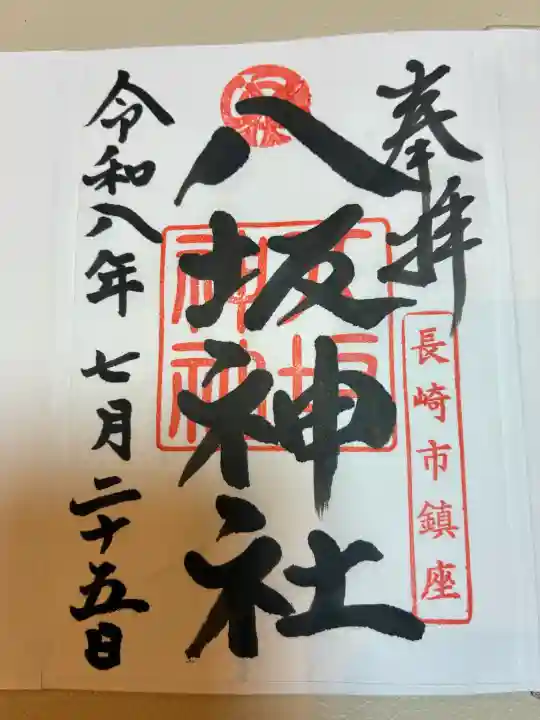 奉拝
長崎市鎮座
八坂神社
八坂神社
令和八年七月二十五日